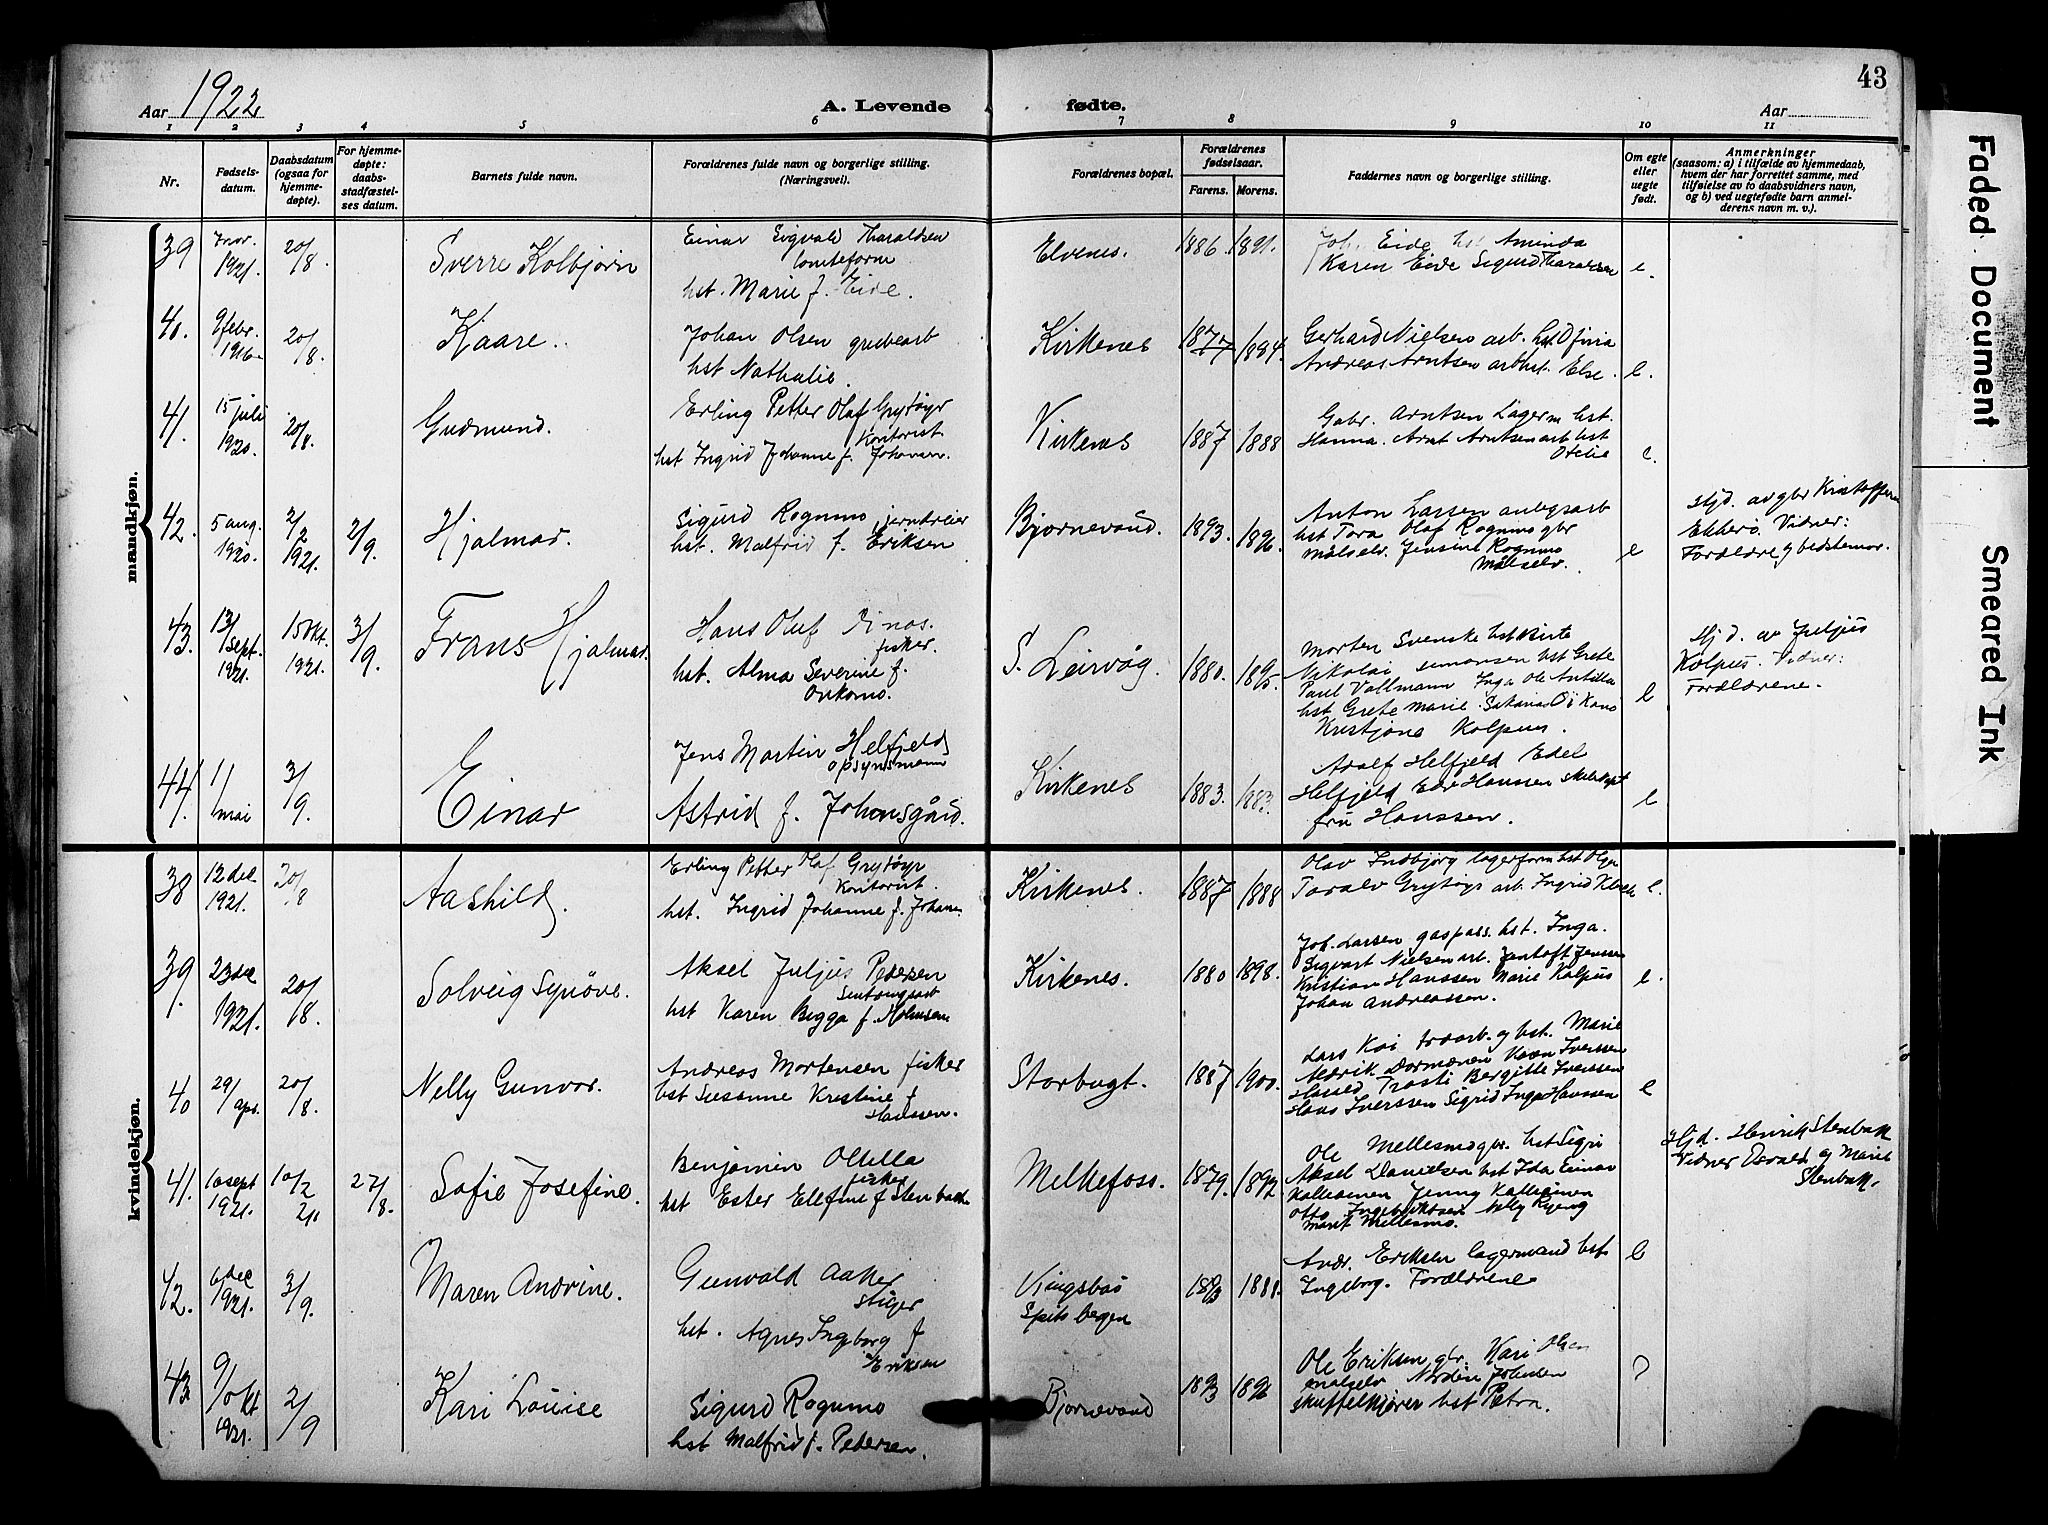 Aar 1922
A. Levende fødte.
Aar
43
1 2 3 4 5 6 7 8 9 10 11
Nr.
Fødsels-
datum.
Daabsdatum
(ogsaa for
hjemme-
døpte).
For hjemme-
døpte:
daabs-
stadfæstel-
ses datum.
Barnets fulde navn.
Forældrenes fulde navn og borgerlige stilling.
(Næringsvei).
Forældrenes bopæl.
Forældrenes
fødselsaar.
Farens. Morens.
Faddernes navn og borgerlige stilling.
Om egte
eller
uegte
født.
Anmerkninger
(saasom: a) i tilfælde av hjemmedaab,
hvem der har forrettet samme, med
tilføielse av to daabsvidners navn,
og b) ved uegtefødte barn anmel-
derens navn m. v.).
mandkjøn.
39
7 nov.
1921.
20/8
Sverre Kolbjørn
Einar Sigvald Tharaldsen
hst. Marie f. Eide.
Elvenes.
1886 1891.
Joh. Eide hst Aminda
Karen Eide Sigurd Tharaldsen
e.
40
9 febr.
1916
20/8.
Kaare.
Johan Olsen grubearb
hst Nathalie.
Kirkenes
1877 1894.
Gerhard Nielsen arb. hst
Andreas Arntsen arb hst. Else.
e.
41.
15 juli
1920.
20/8.
Gudmund.
Erling Petter Olaf Grytøyr
Kontorist.
hst Ingrid Johanne f. Johansen.
Kirkenes
1887 1888
Gabr. Arntsen Lagerm hst.
Hanna. Arnt Arntsen arb hst
Otelie
e.
42.
5 aug.
1920.
2/2
1921.
2/9.
Hjalmar.
Sigurd Rognmo jerndreier
hst. Malfrid f. Eriksen
Bjørnevand.
1893. 1896.
Anton Larsen anlegsarb
hst Tora Olaf Rognmo gbr
målselv. Jensine Rognmo
Målselv.
e
Hjd. av gbr Kristoffer
Ekkerö. Vidner:
Forældre og bedstemor.
43.
13/sept.
1921.
15 okt.
1921.
3/9.
Frans Hjalmar.
Hans Oluf
fisker.
hst. Alma Severine f.
Onkamo.
S. Leirvåg.
1880. 1895.
Morten Svenske hst
Nikolai Simonsen hst Grete
Paul Vollmann Inga Ole Antilla
hst Grete Marie.
Kristjane Kolpus.
e
Hjd. av Juljus
Kolpus. Vidner:
Forældrene.
44.
1/mai
3/9.
Einar
Jens Martin Helfjeld
opsynsmann
Astrid f. Johansgård.
Kirkenes
1883. 1883.
Adolf Helfjeld Edel
Helfjeld Hanssen
fru Hanssen.
e
kvindekjøn.
38
12 dec.
1921.
20/8
Aashild.
Erling Petter Olaf Grytøyr
Kontorist.
hst. Ingrid Johanne f. Johansen
Kirkenes.
1887 1888
Olav Indbjørg lagerform hst Olga
Toralv Grytøyr arb. Ingrid
e.
39.
23 dec
1921.
20/8.
Solveig Synøve.
Aksel Juljus Pedersen
hst Karen Bigga f. Holmsen
Kirkenes.
1880 1898.
Joh. Larsen gaspass. hst. Inga.
Sigvart Nielsen arb. Jentoft Jenssen
Kristian Hanssen Marie Kolpus
Johan Andreassen.
e.
40
29/apr.
20/8.
Nelly Gunvor.
Andreas Mortensen fisker
hst Susanne Kristine f
Hanssen.
Storbugt.
1887 1900.
Lars Koi og hst. Marie
Iverssen
Bergitte Iverssen
Hans Iverssen Sigrid Inga Hanssen
e
41.
10 sept
1921.
10/2
21
27/8.
Sofie Josefine.
Benjamin Ollilla
fisker
hst Ester Elefine f Stenbakk
Melkefoss.
1879. 1892.
Ole Mellesmo gbr. hst Sigri
Aksel Danielsen hst Ida Einar
Kalleainen Jenny Kalleainen
Otto Ingebriktsen Nelly Ryeng
Marit Mellesmo.
Hjd. Henrik Stenbakk
Vidner Osvald og Marit
Stenbakk.
42.
6 dec
1921.
3/9.
Maren Andrine.
Gunvald Aaker
stiger
hst. Agnes Ingeborg f
Eriksen
Kingsbai
Spitsbergen
1893 1888.
Andr. Eriksen lagermand hst.
Ingeborg. Forældrene
e
43
9/okt
1921.
2/9
Kari Louise
Sigurd Rognmo
hst Malfrid f. Petersen.
Bjørnevand
1893 1896
Ole Eriksen gbr. Kari Olsen
målselv Nordin Johansen
skuffelkjører hst Petra.
Faded Document
Smeared Ink